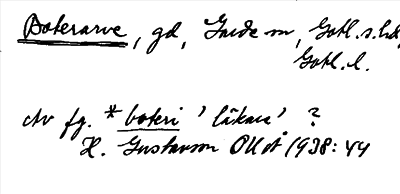 Boterarve, gd, Garde sn, Gotl. s. hd,
Gotl. l.
Av fg. *boteri 'läkare' ?
H. Gustavson OUÅ 1938: 44